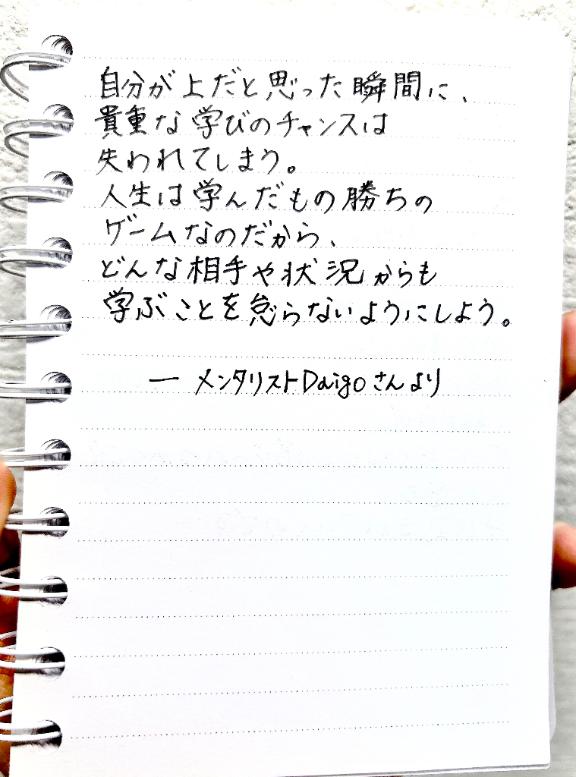 自分が上だと思った瞬間に、
貴重な学びのチャンスは
失われてしまう。
人生は学んだもの勝ちの
ゲームなのだから、
どんな相手や状況からも
学ぶことを怠らないようにしよう。
ー メンタリストDaigoさんより